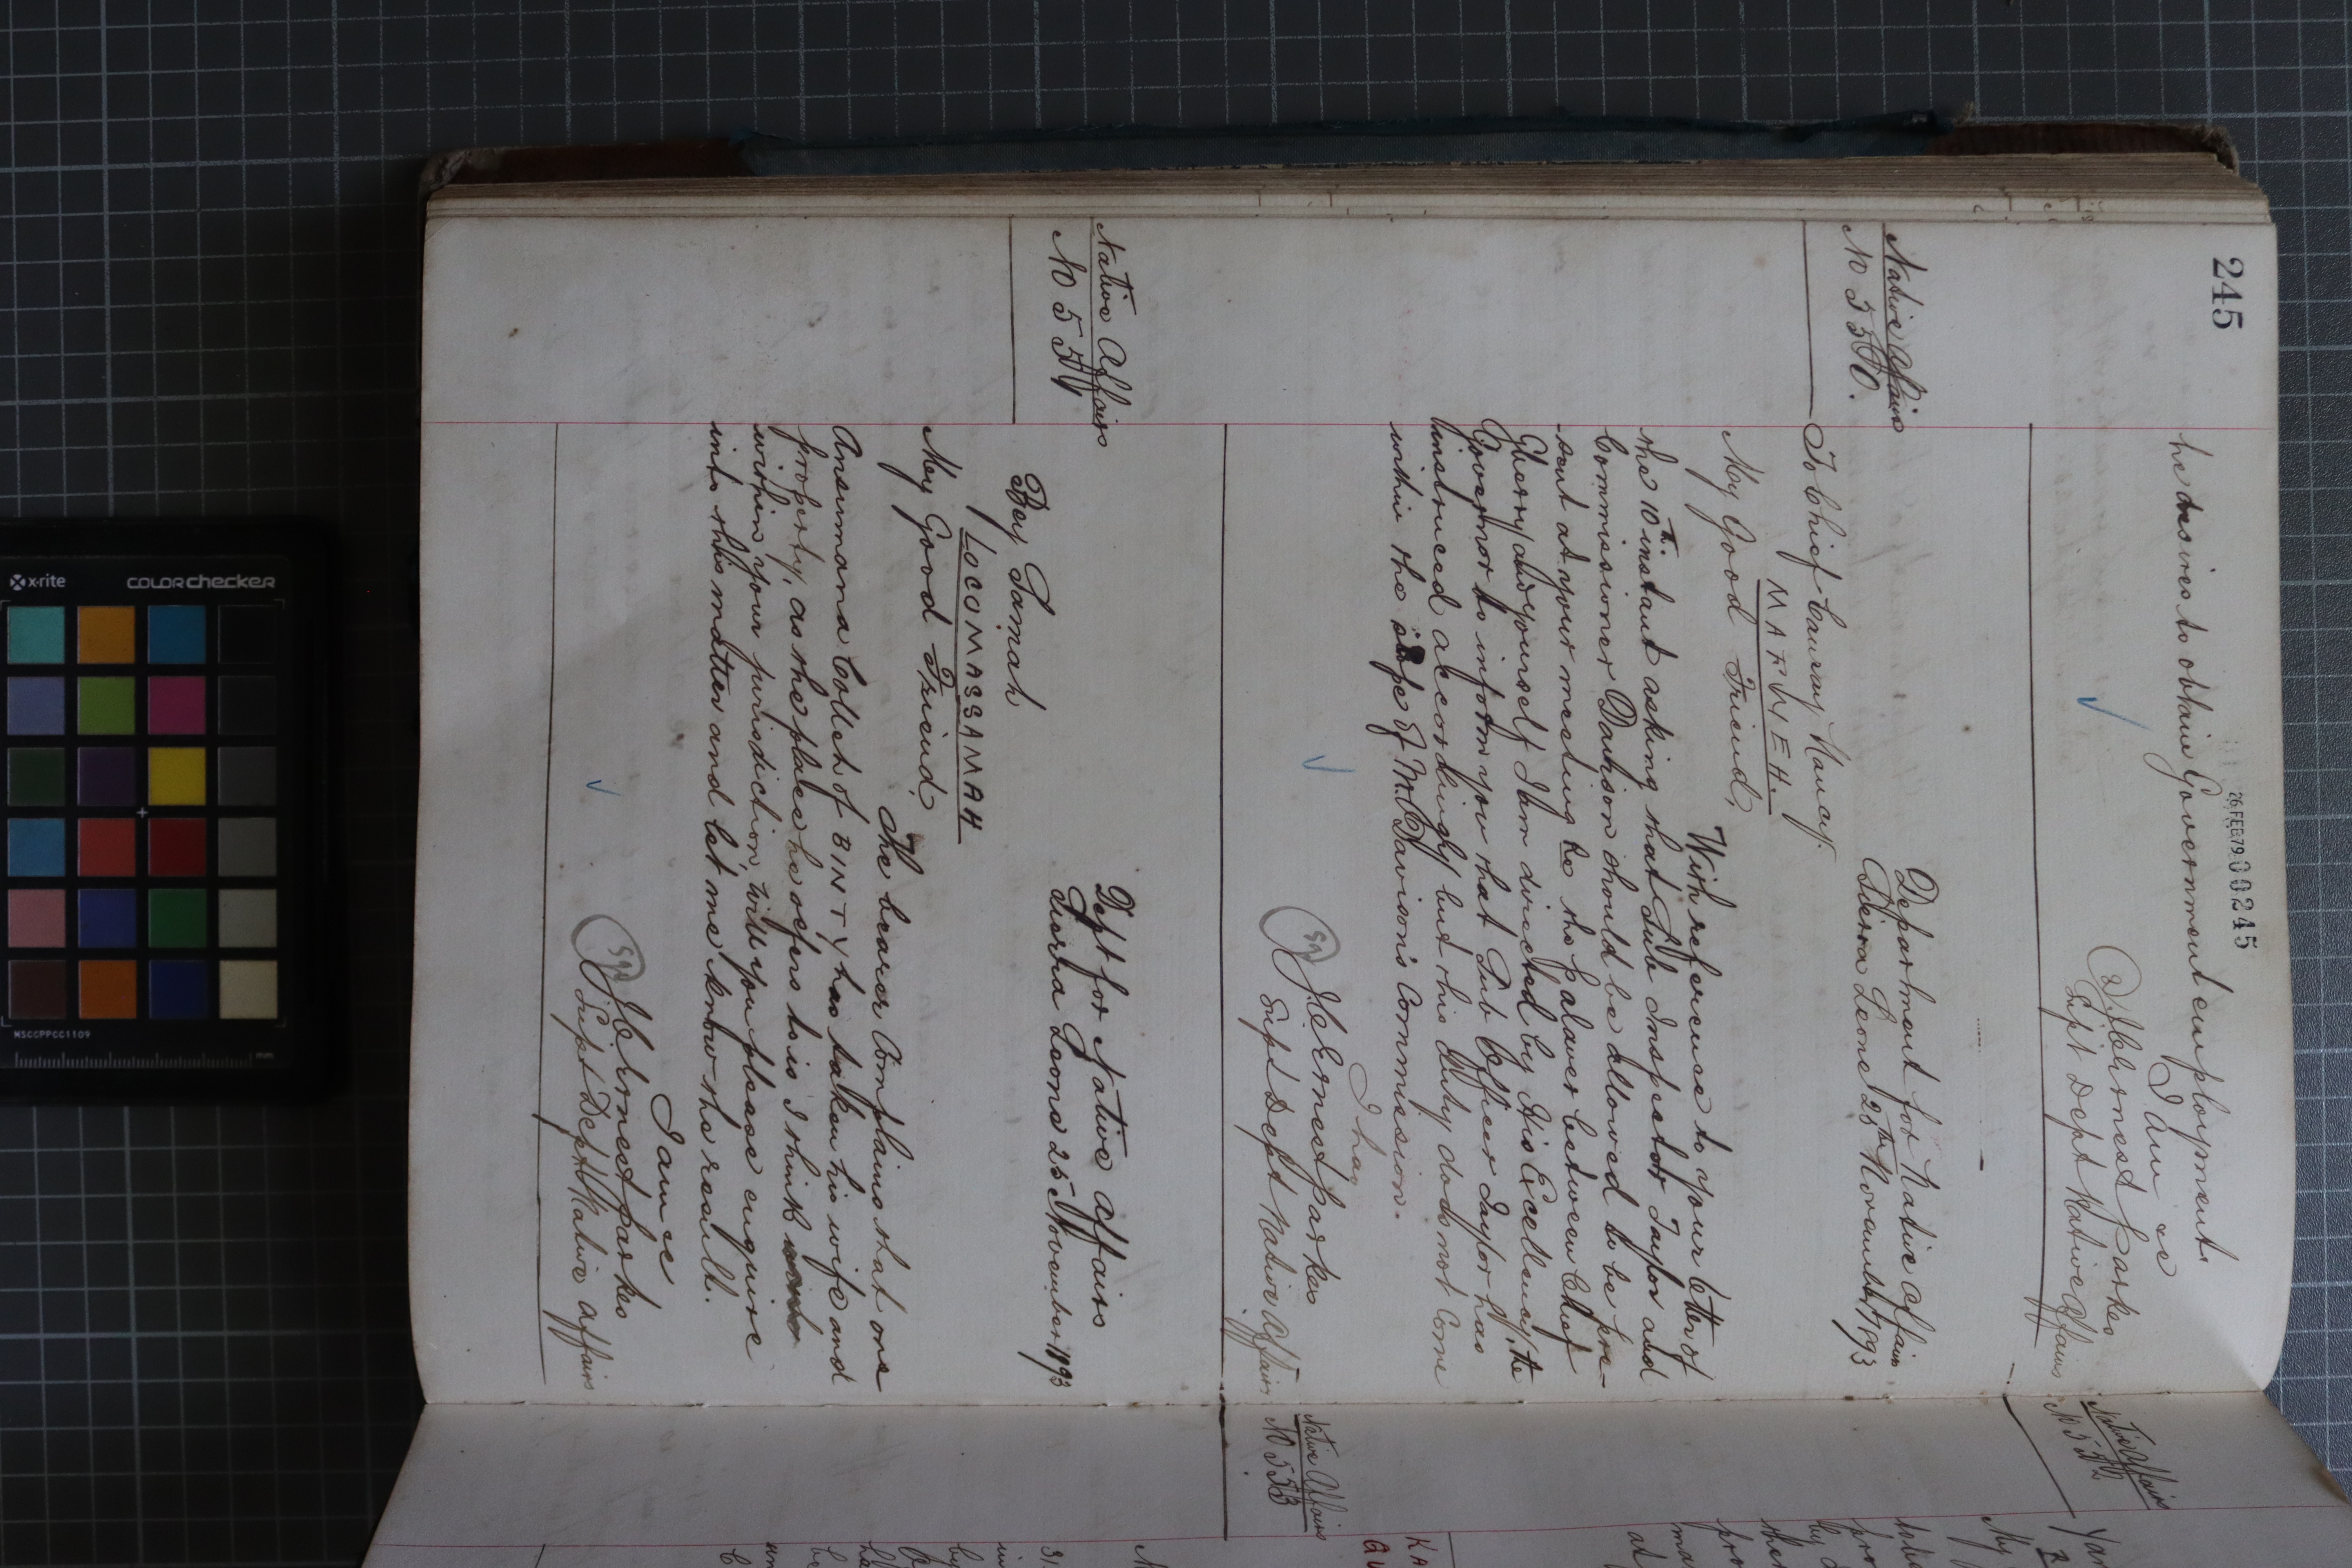 245
26 FEB 79 00245
he desires to obtain Government employment.
I am &c
J. C. Ernest Parkes
Supt Dept Native Affairs
Native Affairs
No 550.
Department for Native Affairs
Sierra Leone 25th November 1893
To Chief Caursay Haucy
MAFWEH.
My Good Friend,
With reference to your letter of
the 10th instant asking that Sub Inspector Taylor and
Commissioner Davison should be allowed to be pre-
sent at your meeting re the palaver between Chief
Gherry and yourself I am directed by His Excellency the
Governor to inform you that Sub Officer Taylor has
instruced accordingly but this duty does not come
within the scope of Mr. Davison's Commission.
I have
Sgd J. C. Ernest Parkes
Supt Dept Native Affairs
Native Affairs
No 551
Dept for Native Affairs
Sierra Leone 25 November 1893
Bey Simah
LOCOMASSAMAH
My Good Friend,
The bearer Complains that one
Ansumana Colleh of BINTY has taken his wife and
property, as the place he refers to is I think
within your jurisdiction, will you please enquire
into this matter and let me know the result.
I am &c
Sgd J. C. Ernest Parkes
Supt Dept Native Affairs
Native Affairs
No 552
Native Affairs
No 553
x-rite
COLORchecker
MSCCPPCC1109
mm